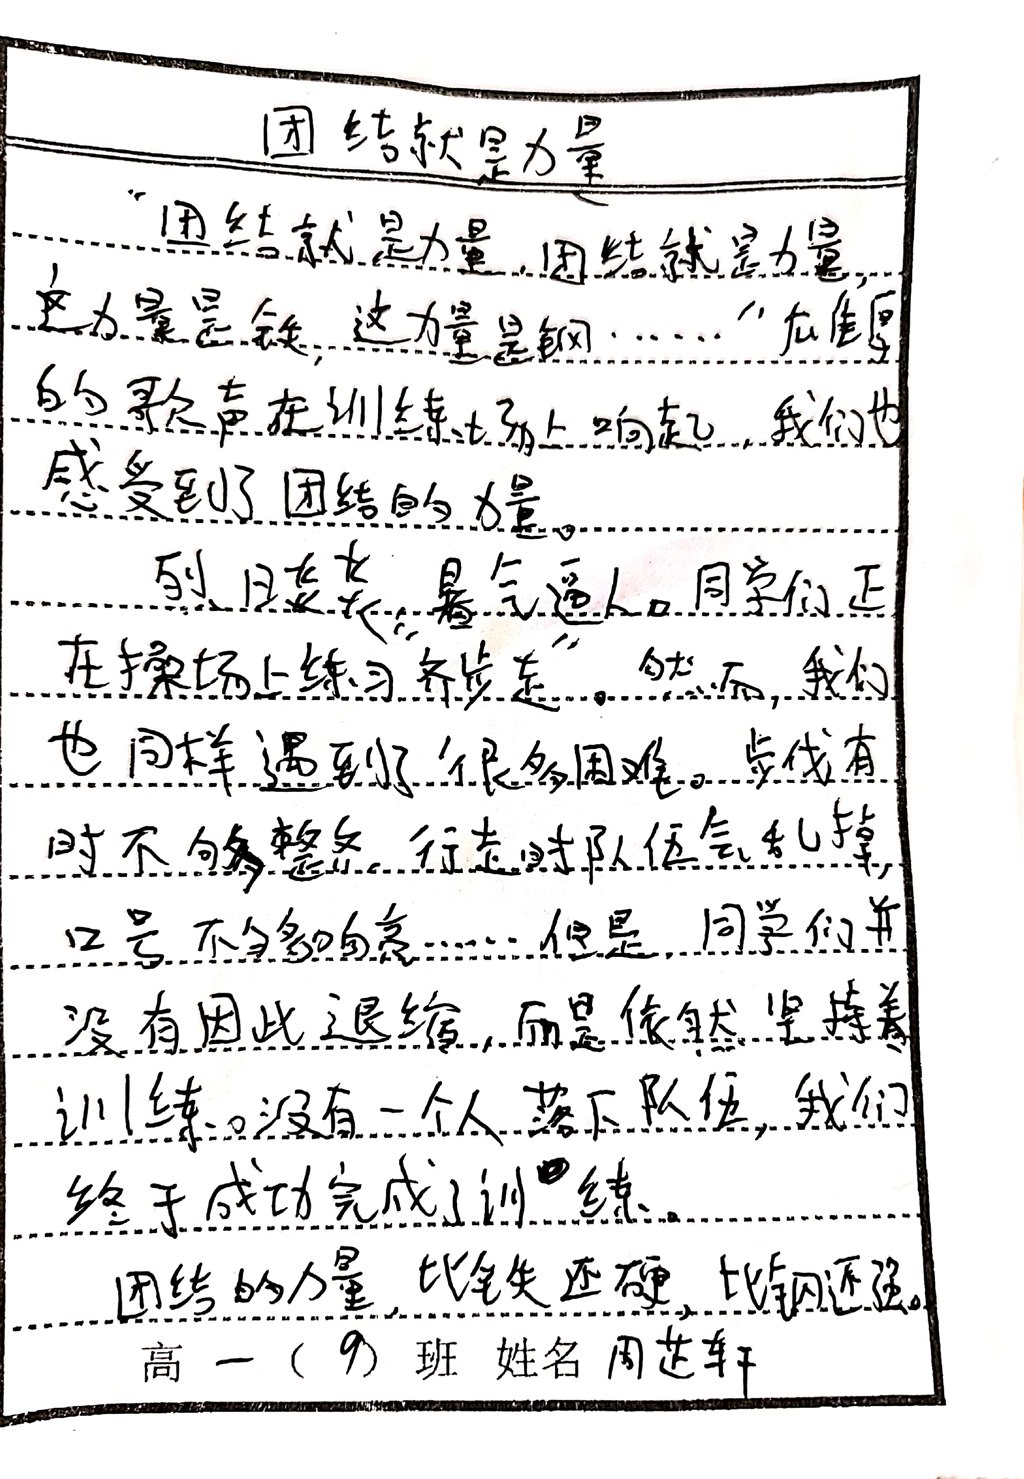 团结就是力量
“团结就是力量，团结就是力量，
这力量是铁，这力量是钢……”雄厚
的歌声在训练场上响起，我们也
感受到了团结的力量。
烈日炎炎，暑气逼人。同学们正
在操场上练习“齐步走”。然而，我们
也同样遇到了很多困难。步伐有
时不够整齐，行走时队伍会乱掉，
口号不够响亮……但是，同学们并
没有因此退缩，而是依然坚持着
训练。没有一个人落下队伍，我们
终于成功完成了训练。
团结的力量，比铁还硬，比钢还强。
高一（9）班 姓名 周芷轩